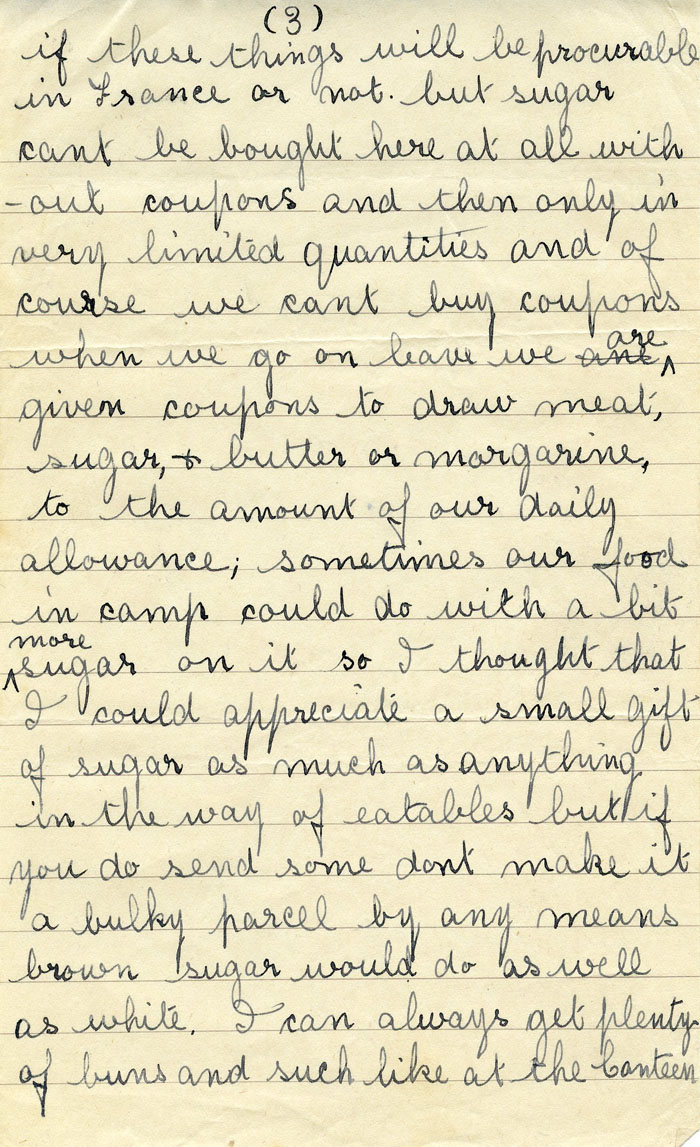 (3)
if these things will be procurable
in France or not. but sugar
cant be bought here at all with
-out coupons and then only in
very limited quantities and of
course we cant buy coupons
when we go on leave we are
given coupons to draw meat,
sugar, & butter or morgarine,
to the amount of our daily
allowance; sometimes our food
in camp could do with a bit
more
sugar on it so I thought that
I could appreciate a small gift
of sugar as much as anything
in the way of eatables but if
you do send some dont make it
a bulky parcel by any means
brown sugar would do as well
as white. I can always get plenty
of buns and such like at the Canteen